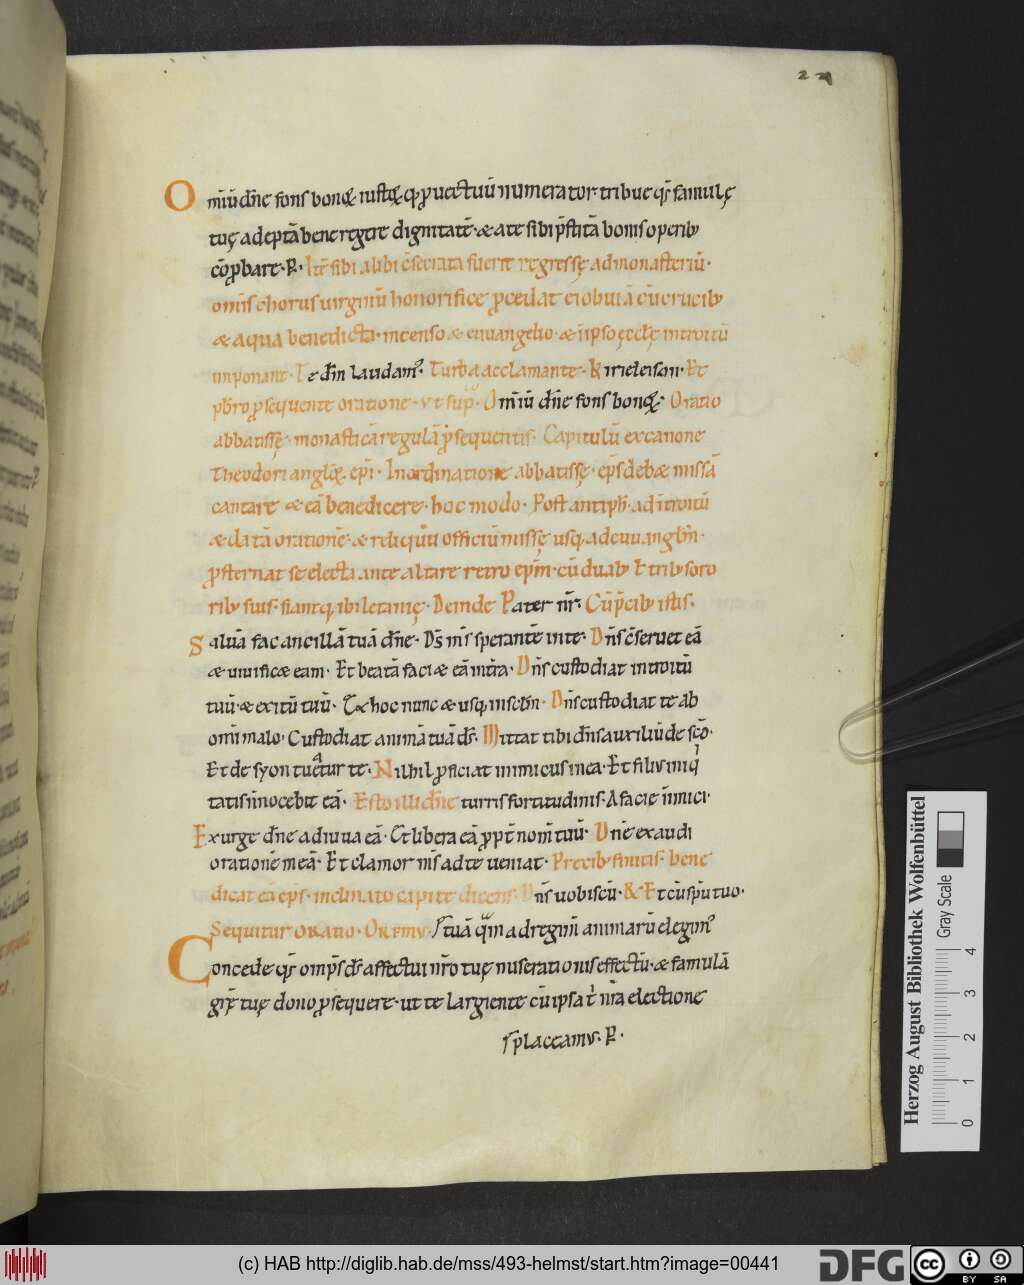 22
Omīū dn̄e fons bonę iustę q; puectuū numerator tribue qs̄ famulę
tuę adeptā bene regere dignitatē · & a te sibi p̄stitā bonis operib;
cōprobare · P · Itē si ibi alibi c̄secrata fuerit regressę ad monasteriū ·
omīs chorus uirginū honorifice pcedat ei obuiā cū crucib;
& aqua benedicta · incenso & euuangelio · & in ipso ęcclę introitū
inponant · Te dm̄ laudam; Turba acclamante · Kirieleison · Et
pb̄ro psequente oratione · ut sup · Omīū dn̄e fons bonę · Oratio
abbatissę · monasticā regulā psequentis · Capitulū ex canone
Theodori anglię epi · In ordinatione abbatissę · ep̄s debæ missā
cantare & eā benedicere · hoc modo · Post antiph · ad introitū
& datā orationē · & reliquū officiū missę usq; ad euuangłm ·
psternat se electa ante altare retro epm̄ · cū duab; ł trib; soro
rib; suis · siantq; ibi letanię · Deinde Pater nr̄ · Cū p̄cib; istis ·
Saluā fac ancillā tuā dn̄e · Ds̄ ms̄ sperantē in te · Dn̄s c̄seruet eā
& uiuificæ eam · Et beatā faciæ eā in tr̄a · Dn̄s custodiat introitū
tuū · & exitū tuū · Ex hoc nunc & usq; in sclm̄ · Dn̄s custodiat te ab
omī malo · Custodiat animā tuā ds̄ · Mittat tibi dn̄s auxiliū de sc̄o ·
Et de syon tueatur te · Nihil pficiat inimicus in ea · Et filius iniq
tatis n̄ nocebit eā · Esto illi dn̄e turris fortitudinis · A facie inimici ·
Exurge dn̄e adiuua eā · Et libera eā ppt̄ nom̄ tuū · Dn̄e exaudi
orationē meā · Et clamor ms̄ ad te ueniat · Precib; finitis · bene
dicat eā eps̄ · inclinato capite dicens · Dn̄s uobiscū · & Et cū spū tuo ·
Sequitur oratio · Oremus
Concede qs̄ omps̄ ds̄ affectui nr̄o tuę miserationis effectū · & famulā
tuā quā ad regim̄ animarū elegim;
grę tuę dono psequere · ut te largiente cū ipsa t' nr̄a electione
placeamus · P ·
Herzog August Bibliothek Wolfenbüttel
Gray Scale
0 1 2 3 4
(c) HAB http://diglib.hab.de/mss/493-helmst/start.htm?image=00441
DFG
cc BY SA